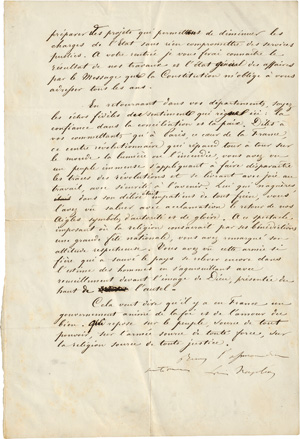 préparer des projets qui permettent de diminuer les
charges de l'État sans rien compromettre des services
publics. À votre rentrée je vous ferai connaître le
résultat de nos travaux et l'état général des affaires
par le Message que la Constitution m'oblige à vous
adresser tous les ans.
En retournant dans vos départements, soyez
les échos fidèles des sentiments qui règnent ici: la
confiance dans la conciliation et la paix. Dites à
vos commettants, qu'à Paris ce cœur de la France,
ce centre révolutionnaire qui répand tour à tour sur
le monde la lumière ou l'incendie, vous avez vu
un peuple immense s'appliquant à faire disparaître
les traces des révolutions et se livrant avec joie au
travail, avec sécurité à l'avenir. Lui qui naguères
dans son délire était impatient de tout frein, vous
l'avez vu saluer avec acclamation le retour de nos
Aigles symboles d'autorité et de gloire. À ce spectacle
imposant où la religion consacrait par ses bénédictions
une grande fête nationale, vous avez remarqué son
attitude respectueuse. Vous avez vu cette armée si
fière qui a sauvé le pays se relever encore dans
l'estime des hommes en s'agenouillant avec
recueillement devant l'image de Dieu, présentée du
haut de l'autel.
Cela veut dire qu'il y a en France un
gouvernement animé de la foi et de l'amour du
bien. qui repose sur le peuple, source de tout
pouvoir, sur l'armée source de toute force, sur
la religion source de toute justice.
Louis Napoléon